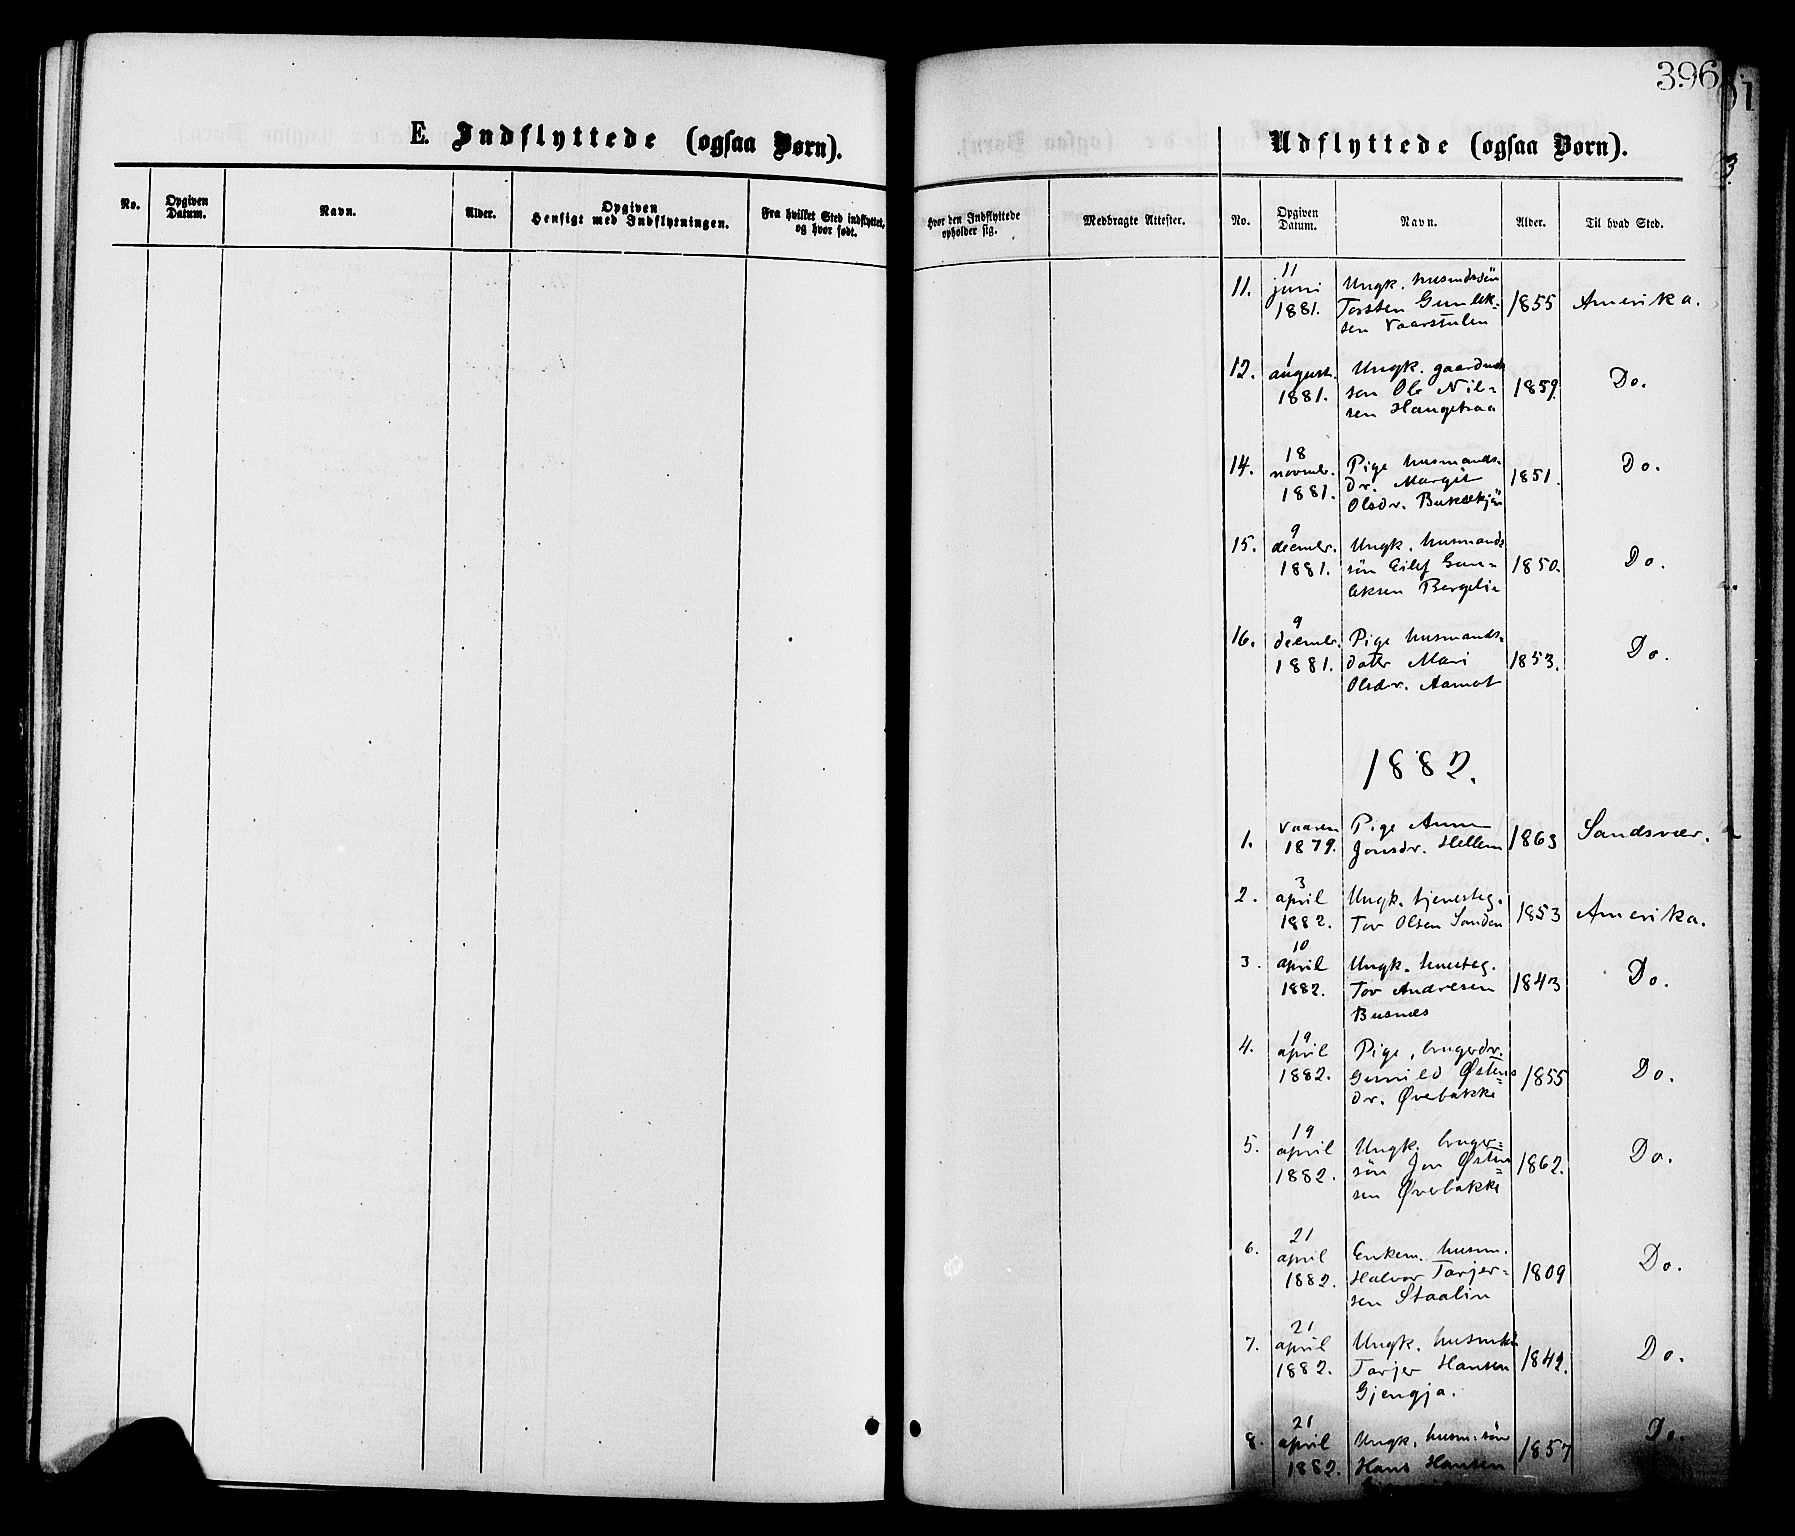 396
E. Indflyttede (ogsaa Børn).
No.
Opgiven Datum.
Navn.
Alder.
Opgiven Hensigt med Indflytningen.
Fra hvilket Sted indflyttet, og hvor født.
Hvor den Indflyttede opholder sig.
Medbragte Attester.
Udflyttede (ogsaa Børn).
No.
Opgiven Datum.
Navn.
Alder.
Til hvad Sted.
11. 11 juni 1881. Ungk. husmdssön Torsten Gunleksen Vaarstulen 1855 Amerika.
12. 1 august. 1881. Ungk. gaardmds sön Ole Nilsen Haugetraa 1859. Do.
14. 18 novmbr. 1881. Pige husmandsdr. Margit Olsdr. 1851. Do.
15. 9 decmbr. 1881. Ungk. husmandssön Eilef Gunleksen Bergelie 1850. Do.
16. 9 decmbr. 1881. Pige husmandsdatter Mari Olsdr. Aamot 1853. Do.
1882.
1. Vaaren 1879. Pige Anne Jonsdr. Hellem 1863 Sandsvær.
2. 3 april 1882. Ungk. tjenesteg. Tov Olsen Sanden 1853 Amerika.
3. 10 april 1882. Ungk. Tov Andresen Busnæs 1843 Do.
4. 19 april 1882. Pige, brugerdr. Gunild Østensdr. Øvebakke 1855 Do.
5. 19 april 1882. Ungk. brugersön Jon Østensen Øvebakke 1862. Do.
6. 21 april 1882. Enkem. husm. Halvor Tarjersen Staalin 1809 Do.
7. 21 april 1882. Ungk. Tarjer Hansen Gjengja. 1842. Do.
8. 21 april 1882. Ungk. husm.sön Hans Hansen 1857 Do.